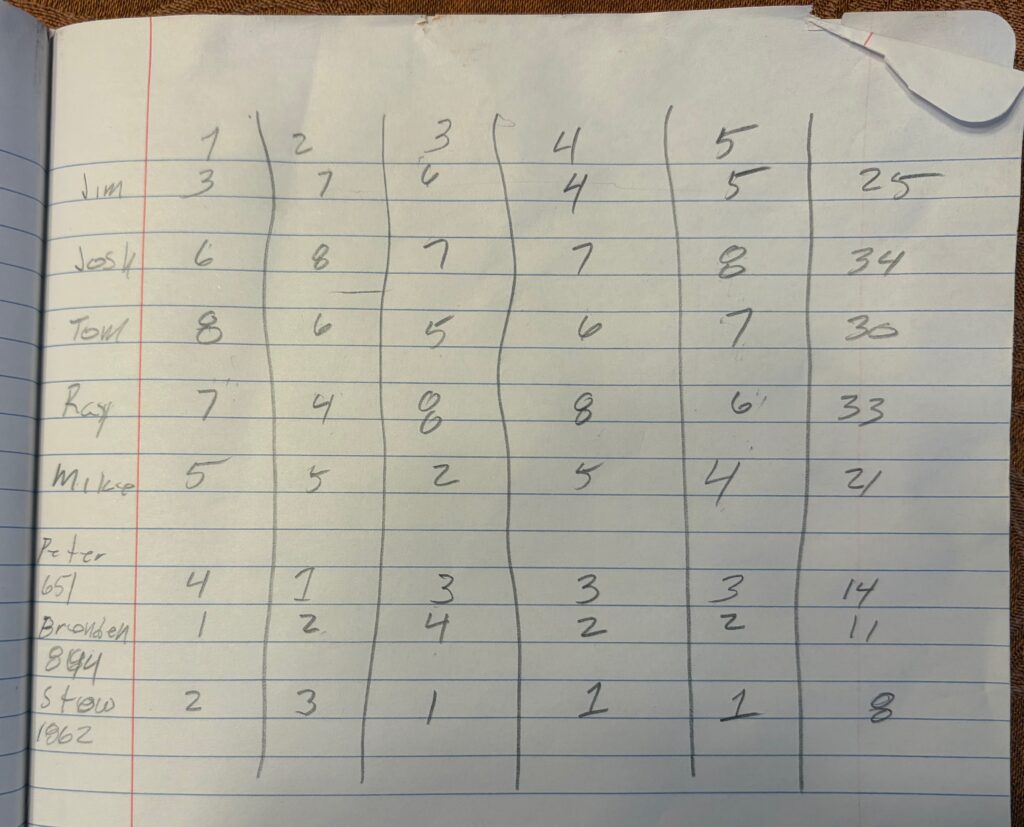 1 2 3 4 5
Jim 3 7 6 4 5 25
Josh 6 8 7 7 8 34
Tom 8 6 5 6 7 30
Ray 7 4 8 8 6 33
Mike 5 5 2 5 4 21
Peter
651 4 1 3 3 3 14
Branden 1 2 4 2 2 11
Stew 2 3 1 1 1 8
1862